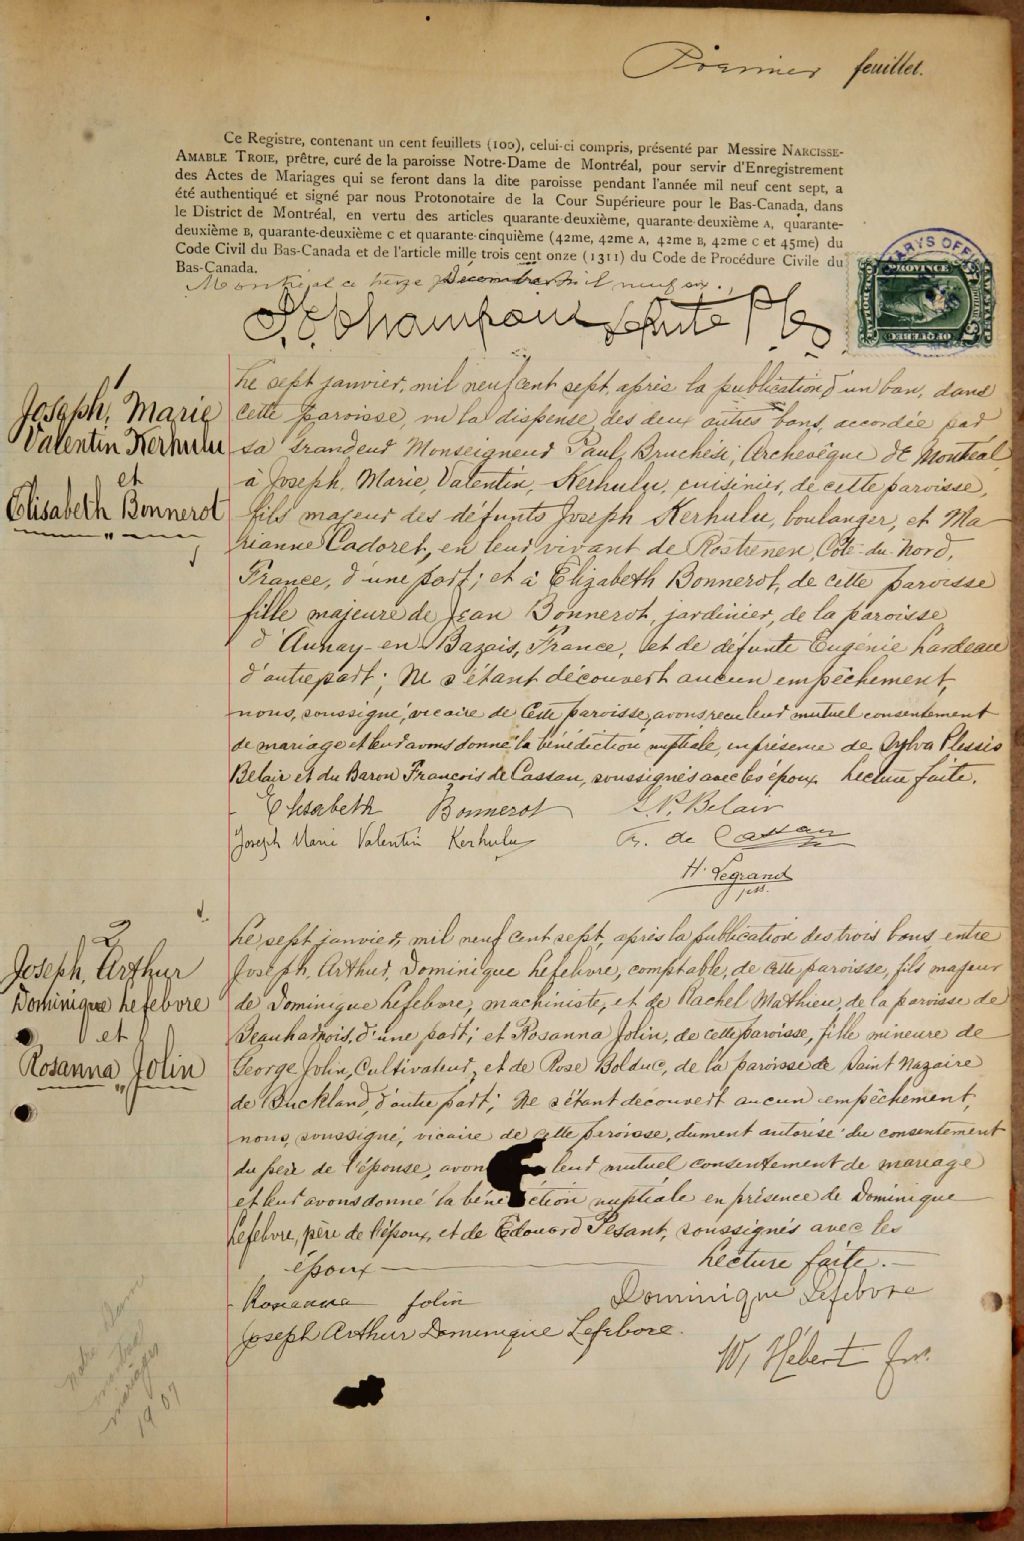 Premier feuillet.
Ce Registre, contenant un cent feuillets (100), celui-ci compris, présenté par Messire NARCISSE-
AMABLE TROIE, prêtre, curé de la paroisse Notre-Dame de Montréal, pour servir d'Enregistrement
des Actes de Mariages qui se feront dans la dite paroisse pendant l'année mil neuf cent sept, a
été authentiqué et signé par nous Protonotaire de la Cour Supérieure pour le Bas-Canada, dans
le District de Montréal, en vertu des articles quarante-deuxième, quarante-deuxième A, quarante-
deuxième B, quarante-deuxième C et quarante-cinquième (42me, 42me A, 42me B, 42me C et 45me) du
Code Civil du Bas-Canada et de l'article mille trois cent onze (1311) du Code de Procédure Civile du
Bas-Canada.
Montréal ce treize Décembre mil neuf six.
Députe P.C.S.
PROVINCE
QUEBEC
$1
1
Joseph, Marie
Valentin Kerhulu
et
Elisabeth Bonnerot
Le sept janvier, mil neuf cent sept, après la publication d'un ban, dans
cette paroisse, vu la dispense des deux autres bans, accordée par
sa Grandeur Monseigneur Paul Bruchési, Archevêque de Montréal,
à Joseph, Marie, Valentin, Kerhulu, cuisinier, de cette paroisse,
fils majeur des défunts Joseph Kerhulu, boulanger, et Ma-
rianne Cadoret, en leur vivant de Rostrenen, Côte-du-Nord,
France, d'une part; et à Elizabeth Bonnerot, de cette paroisse
fille majeure de Jean Bonnerot, jardinier, de la paroisse
d'Aunay-en-Bazois, France, et de défunte Eugénie Lardeau
d'autre part; Ne s'étant découvert aucun empêchement,
nous, soussigné, vicaire de cette paroisse, avons reçu leur mutuel consentement
de mariage et leur avons donné la bénédiction nuptiale, en présence de Sylva Plessis
Belair et du Baron François de Cassan, soussignés avec les époux. Lecture faite.
Elisabeth Bonnerot S. P. Belair
Joseph Marie Valentin Kerhulu Fr. de Cassan
H. Legrand
pss.
2
Joseph, Arthur
Dominique Lefebvre
et
Rosanna Jolin
Le sept janvier, mil neuf cent sept, après la publication des trois bans, entre
Joseph, Arthur, Dominique Lefebvre, comptable, de cette paroisse, fils majeur
de Dominique Lefebvre, machiniste, et de Rachel Mathieu, de la paroisse de
Beauharnois, d'une part; et Rosanna Jolin, de cette paroisse, fille mineure de
George Jolin, Cultivateur, et de Rose Bolduc, de la paroisse de Saint Nazaire
de Buckland, d'autre part; Ne s'étant découvert aucun empêchement,
nous, soussigné, vicaire de cette paroisse, dument autorisé du consentement
du père de l'épouse, avons leur mutuel consentement de mariage
et leur avons donné la bénédiction nuptiale en présence de Dominique
Lefebvre, père de l'époux, et de Edouard Pesant, soussignés avec les
époux Lecture faite.
Rosanna Jolin Dominique Lefebvre
Joseph Arthur Dominique Lefebvre.
W. Hébert
Notre Dame
montreal
mariages
1907